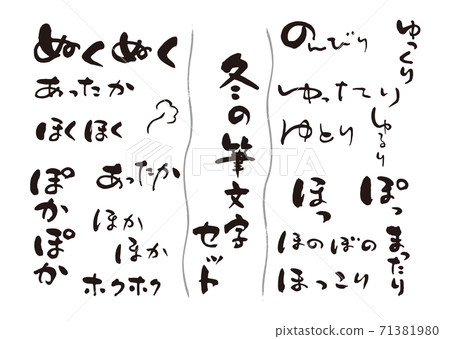 ぬくぬく
あったか
ほくほく
ぽかぽか
あったか
ほか
ほか
ホクホク
冬の筆文字
セット
のんびり
ゆったり
ゆとり
ゆっくり
ゆるり
ほっ
ぽっ
ほのぼの
ほっこり
まったり
71381980